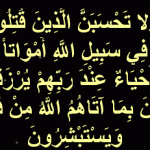 ولا تَحْسَبَنَّ الَّذِينَ قُتِلُو
فِي سَبِيلِ اللَّهِ أَمْوَاتاً
حْيَاءٌ عِنْدَ رَبِّهِمْ يُرْزَقُ
نَ بِمَا آتَاهُمُ اللَّهُ مِنْ فَ
وَيَسْتَبْشِرُونَ